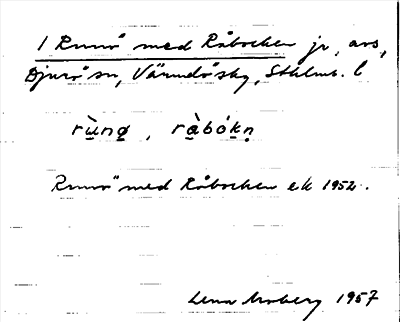 1 Runö med Råbocken jr, avs,
Djurö sn, Värmdö skg, Sthlms. l
rùnø̱, rà̱bóḵṇ
Runö med Råbocken ek 1952.
Lena Moberg 1957